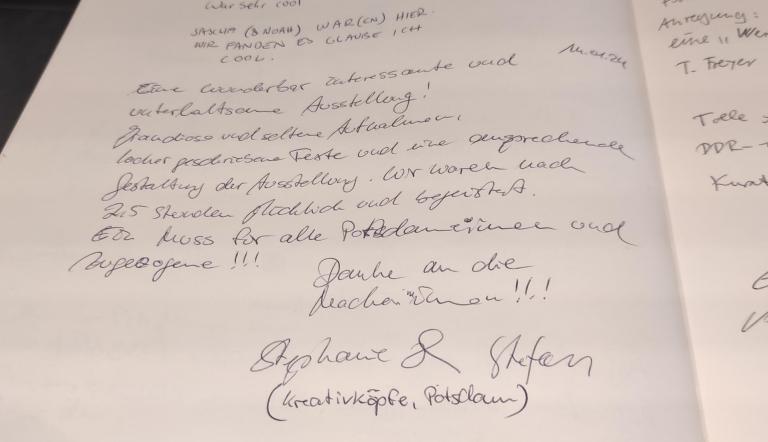 War sehr cool
SASCHA (& NOAH) WAR(EN) HIER.
WIR FANDEN ES GLAUBE ICH
COOL.
Eine wunderbar interessante und
unterhaltsame Ausstellung!
Grandiose und seltene Aufnahmen,
locker geschriebene Texte und eine ansprechende
Gestaltung der Ausstellung. Wir waren nach
2,5 Stunden glücklich und begeistert.
Ein Muss für alle Potsdamerinnen und
Zugezogene!!!
Danke an die
Macher*innen!!!!
Stephanie & Stefan
(Kreativköpfe, Potsdam)
Anregung:
eine "Wer
T. Freyer
Tolle
DDR-
Kurat